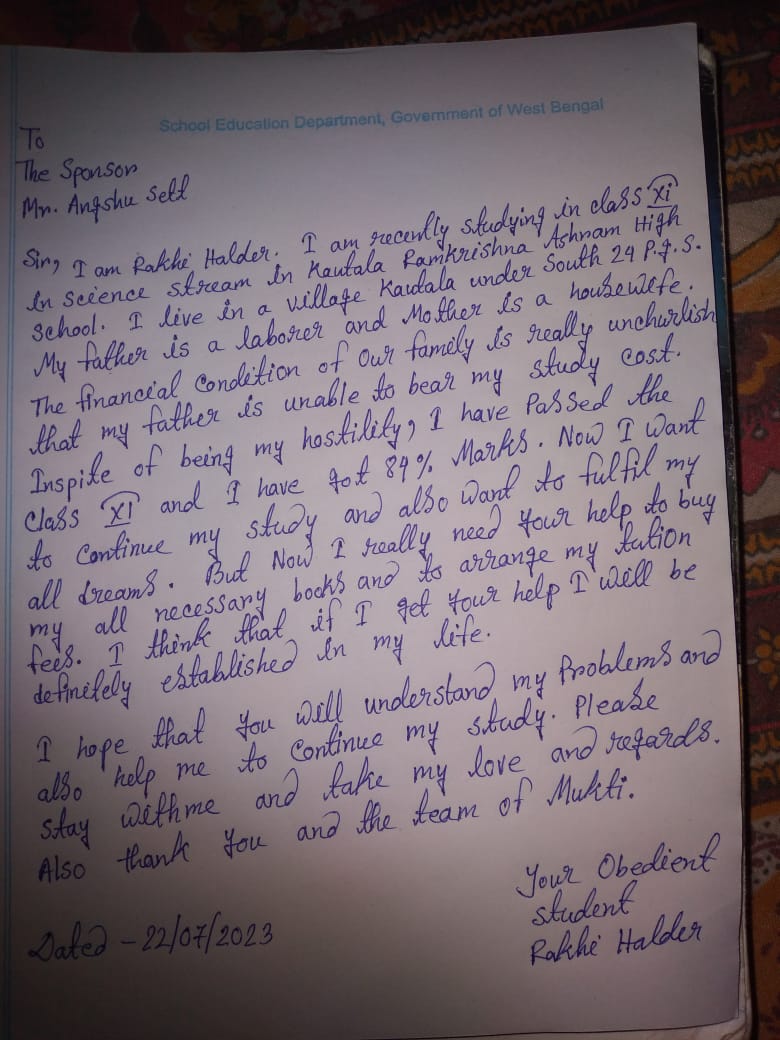 School Education Department, Government of West Bengal
To
The Sponsor
Mr. Angshu Sett
Sir, I am Rakhi Halder. I am recently studying in class XI
in science stream in Kautala Ramkrishna Ashram High
School. I live in a village Kautala under South 24 P.g.S.
My father is a laborer and Mother is a housewife.
The financial Condition of Our family is really unchurlish
that my father is unable to bear my study cost.
Inspite of being my hostility, I have Passed the
Class XI and I have got 84% Marks. Now I Want
to Continue my study and also want to fulfil my
all dreams. But Now I really need Your help to buy
my all necessary books and to arrange my tution
fees. I think that if I get Your help I will be
definitely established in my life.
I hope that You Will understand my Problems and
also help me to Continue my study. Please
stay withme and take my love and regards.
Also thank You and the team of Mukti.
Your Obedient
student
Rakhi Halder
Dated - 22/07/2023